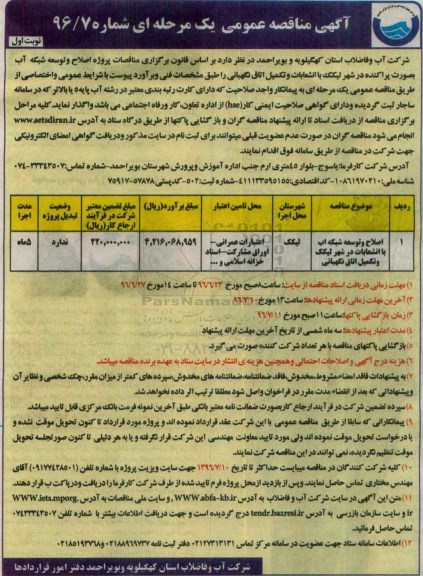 آگهی مناقصه عمومی یک مرحله ای شماره ۹۶/۷
نوبت اول
شرکت آب وفاضلاب استان کهگیلویه و بویراحمد در نظر دارد بر اساس قانون برگزاری مناقصات پروژه اصلاح وتوسعه شبکه آب
بصورت پراکنده در شهر لیکک با انشعابات وتکمیل اتاق نگهبانی را طبق مشخصات فنی وبرآورد پیوست با شرایط عمومی واختصاصی از
طریق مناقصه عمومی یک مرحله ای به پیمانکار واجد صلاحیت که دارای کارت رتبه بندی معتبر در رشته آب پایه ۵ یا بالاتر که در سامانه
ساجار ثبت گردیده ودارای گواهی صلاحیت ایمنی کار(hse) از اداره تعاون، کار ورفاه اجتماعی می باشد، واگذار نماید. کلیه مراحل
برگزاری مناقصه از دریافت اسناد تا ارائه پیشنهاد مناقصه گران و باز گشایی پاکتها از طریق درگاه ستاد به آدرس www.setadiran.ir
انجام می شود مناقصه گران در صورت عدم عضویت قبلی میتوانند برای ثبت نام در سایت مذکور ودریافت گواهی امضای الکترونیکی
جهت شرکت در مناقصه از طریق سامانه فوق اقدام نمایند.
آدرس شرکت کارفرما: یاسوج-بلوار ۴۵متری ارم جنب اداره آموزش وپرورش شهرستان بویراحمد-شماره تماس: ۰۷۴-۳۳۳۴۳۵۰۷
شناسه ملی: ۱۰۸۶۱۹۷۰۲۱۰ -کداقتصادی: ۴۱۱۱۳۳۵۹۵۱۵۵ -شماره ثبت: ۵۰۲-کدپستی ۵۷۸۷۸-۷۵۹۱۷
ردیف | موضوع مناقصه | شهرستان محل اجرا | محل تامین اعتبار | مبلغ برآورد(ریال) | مبلغ تضمین معتبر شرکت در فرآیند ارجاع کار(ریال) | وضعیت تبدیل پروژه | مدت اجرا
۱ | اصلاح وتوسعه شبکه اب با انشعابات در شهر لیکک وتکمیل اتاق نگهبانی | لیکک | اعتبارات عمرانی-اوراق مشارکت-اسناد خزانه اسلامی و ... | ۴,۲۱۶,۰۶۸,۹۵۹ | ۲۲۰,۰۰۰,۰۰۰ | ندارد | ۵ماه
۱) مهلت زمانی دریافت اسناد مناقصه از سایت: ساعت ۸صبح مورخ ۹۶/۶/۲۳ تا ساعت ۱۴ مورخ ۹۶/۶/۲۷
۲) آخرین مهلت زمانی ارائه پیشنهادها: ساعت ۱۳ مورخ ۹۶/۷/۱۰
۳) زمان بازگشایی پاکتها: ساعت ۱۱ صبح مورخ ۹۶/۷/۱۱
۴) مدت اعتبار پیشنهادها: سه ماه شمسی از تاریخ آخرین مهلت ارائه پیشنهاد
۵) بازگشایی پاکتهای مناقصه با هر تعداد شرکت کننده صورت می گیرد.
۶) هزینه درج آگهی و اصلاحات احتمالی وهمچنین هزینه ی انتشار در سایت ستاد به عهده برنده مناقصه میباشد.
۷) به پیشنهادات فاقد امضاء، مشروط، مخدوش، فاقد ضمانتنامه، ضمانتنامه های مخدوش، سپرده های کمتر از میزان مقرر، چک شخصی و نظایر آن
وپیشنهاداتی که بعد از انقضاء مدت مقرر در فراخوان واصل شود مطلقا ترتیب اثر داده نخواهد شد.
۸) سپرده تضمین شرکت در فرآیند ارجاع کار بصورت ضمانت نامه معتبر بانکی طبق آخرین نمونه فرمت بانک مرکزی قابل تایید میباشد.
۹) پیمانکارانی که سابقا از طریق مناقصه عمومی با این شرکت عقد قرارداد نموده اند و پروژه مورد قرارداد تا کنون تحویل موقت نشده و
یا درخواست تحویل موقت نموده اند ولی مورد تایید معاونت مهندسی این شرکت قرار نگرفته و یا به هر دلیلی تا کنون صورتجلسه تحویل
موقت تنظیم نگردیده، نمی توانند در این مناقصه شرکت نمایند.
۱۰) کلیه شرکت کنندگان در مناقصه میبایست حداکثر تا تاریخ ۱۳۹۶/۷/۱۰ جهت سایت ویزیت پروژه با شماره تلفن (۰۹۱۷۷۴۲۸۵۰۱) آقای
مهندس مختاری تماس حاصل نمایند. وپس از بازدید از محل پروژه فرم تایید شده از طرف شرکت کارفرما را دریافت ودرپاکت ب قرار دهند.
۱۱) متن این آگهی در سایت شرکت آب و فاضلاب به آدرس WWW.abfa-kb.ir و سایت ملی مناقصات به آدرس WWW.iets.mporg.
ir و سایت سازمان بازرسی به آدرس tendr.bazresi.ir درج گردیده است و جهت دریافت اطلاعات بیشتر با شماره تلفن ۰۷۴۳۳۳۴۳۵۰۷
تماس حاصل فرمائید.
۱۲) اطلاعات سامانه ستاد جهت عضویت در سامانه مرکز تماس ۰۲۱۲۷۳۱۳۱۳۱ دفتر ثبت نامه ۰۲۱۸۸۹۶۹۷۳۷ و ۰۲۱۸۵۱۹۳۷۶۸
شرکت آب وفاضلاب استان کهگیلویه وبویراحمد دفتر امور قراردادها